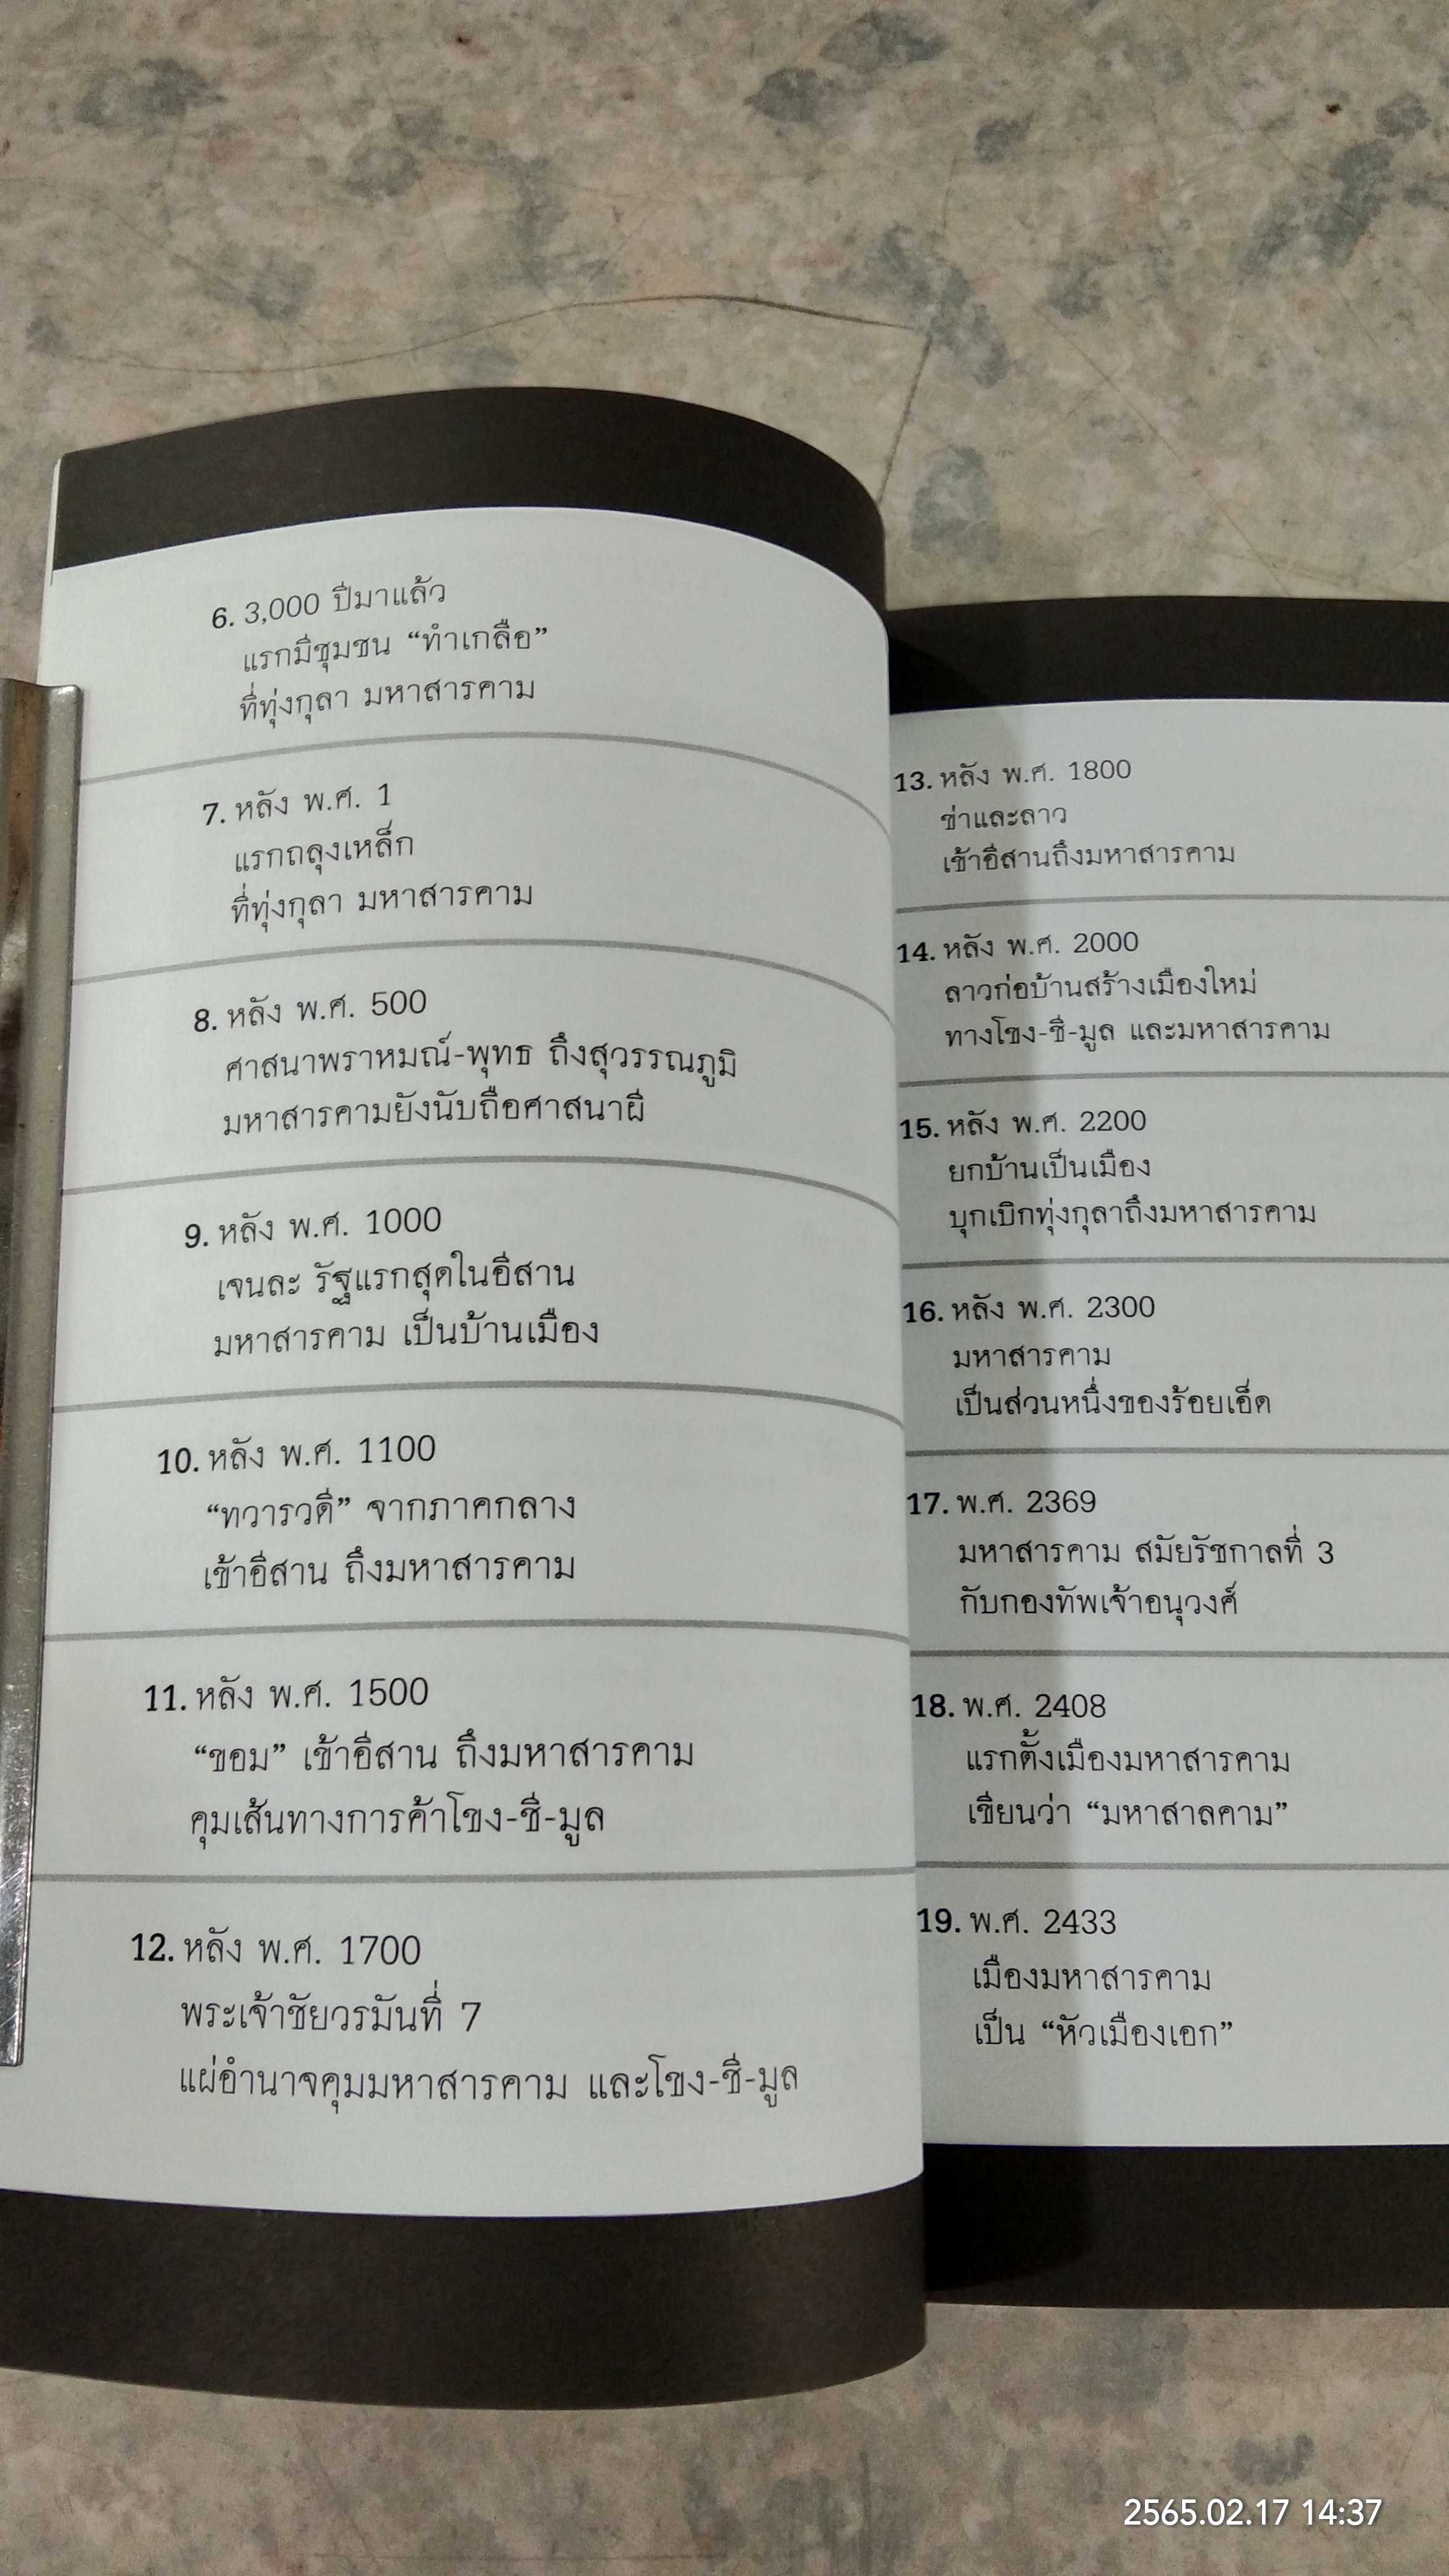 6. 3,000 ปีมาแล้ว
แรกมีชุมชน “ทำเกลือ”
ที่ทุ่งกุลา มหาสารคาม
7. หลัง พ.ศ. 1
แรกถลุงเหล็ก
ที่ทุ่งกุลา มหาสารคาม
8. หลัง พ.ศ. 500
ศาสนาพราหมณ์-พุทธ ถึงสุวรรณภูมิ
มหาสารคามยังนับถือศาสนาผี
9. หลัง พ.ศ. 1000
เจนละ รัฐแรกสุดในอีสาน
มหาสารคาม เป็นบ้านเมือง
10. หลัง พ.ศ. 1100
“ทวารวดี” จากภาคกลาง
เข้าอีสาน ถึงมหาสารคาม
11. หลัง พ.ศ. 1500
“ขอม” เข้าอีสาน ถึงมหาสารคาม
คุมเส้นทางการค้าโขง-ชี-มูล
12. หลัง พ.ศ. 1700
พระเจ้าชัยวรมันที่ 7
แผ่อำนาจคุมมหาสารคาม และโขง-ชี-มูล
13. หลัง พ.ศ. 1800
ข่าและลาว
เข้าอีสานถึงมหาสารคาม
14. หลัง พ.ศ. 2000
ลาวก่อบ้านสร้างเมืองใหม่
ทางโขง-ชี-มูล และมหาสารคาม
15. หลัง พ.ศ. 2200
ยกบ้านเป็นเมือง
บุกเบิกทุ่งกุลาถึงมหาสารคาม
16. หลัง พ.ศ. 2300
มหาสารคาม
เป็นส่วนหนึ่งของร้อยเอ็ด
17. พ.ศ. 2369
มหาสารคาม สมัยรัชกาลที่ 3
กับกองทัพเจ้าอนุวงศ์
18. พ.ศ. 2408
แรกตั้งเมืองมหาสารคาม
เขียนว่า “มหาสาลคาม”
19. พ.ศ. 2433
เมืองมหาสารคาม
เป็น “หัวเมืองเอก”
2565.02.17 14:37